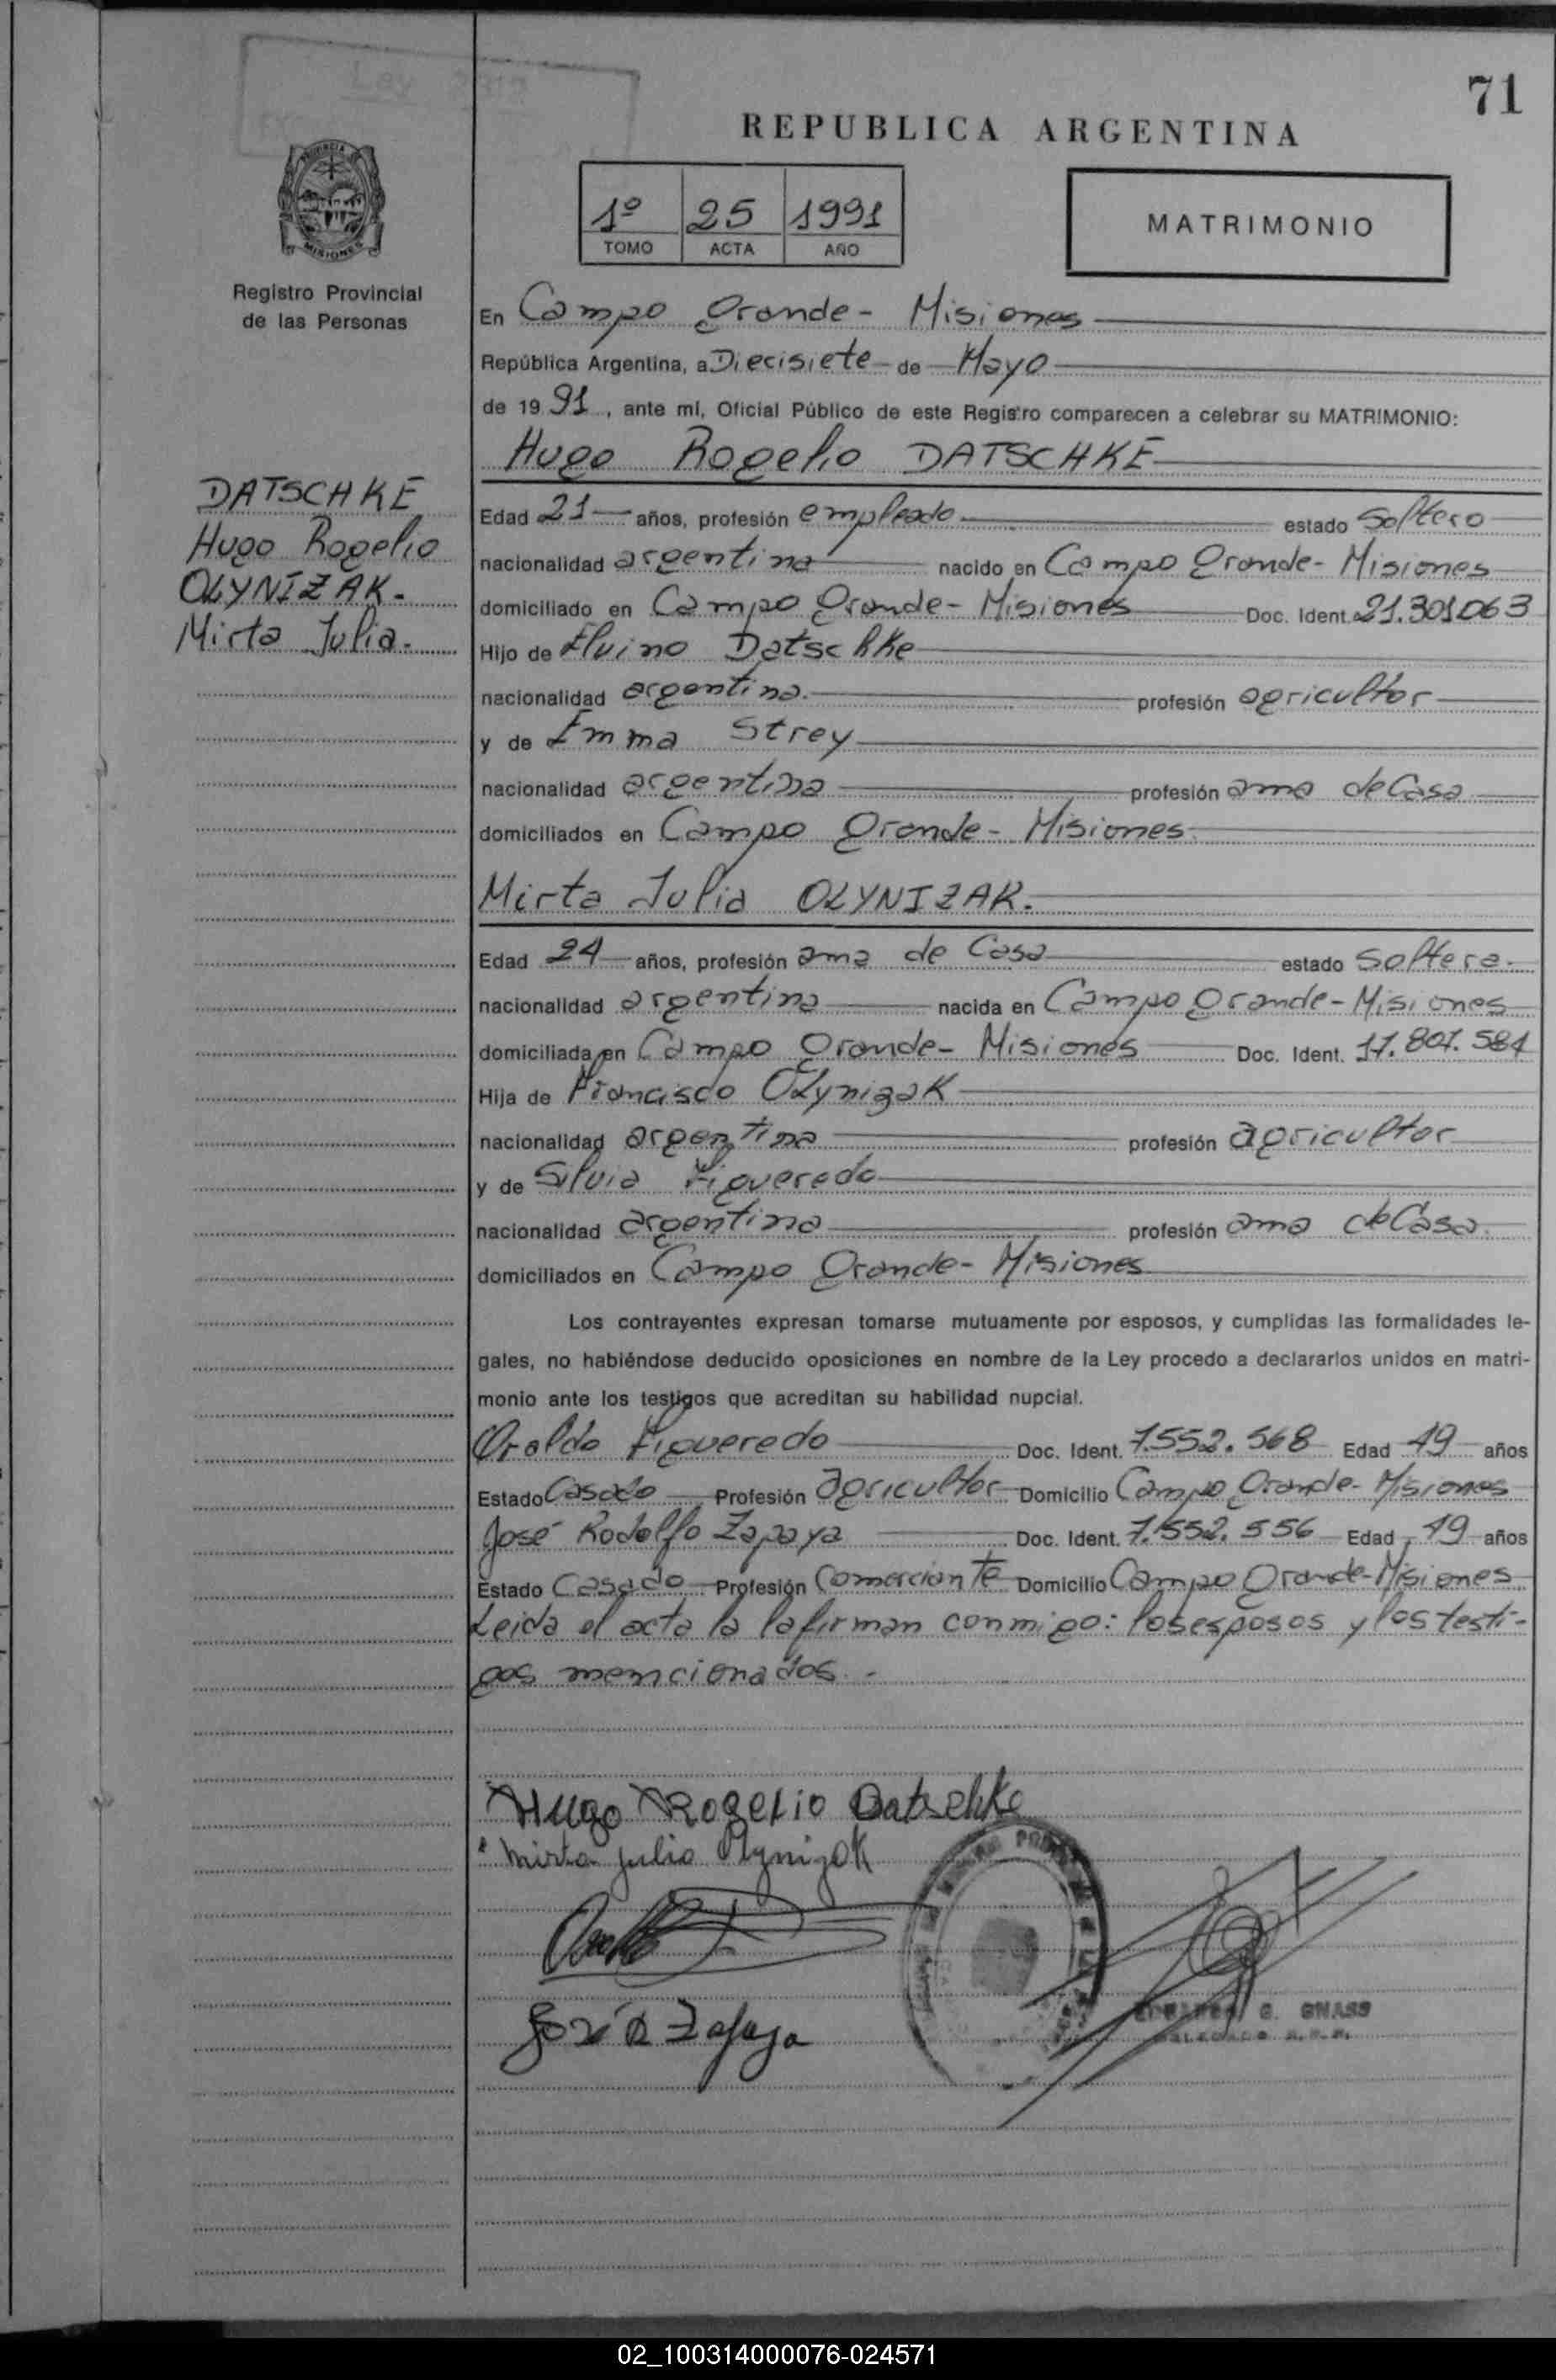 71
REPUBLICA ARGENTINA
1º 25 1991
TOMO ACTA AÑO
MATRIMONIO
PROVINCIA DE
MISIONES
Registro Provincial
de las Personas
DATSCHKE
Hugo Rogelio
OLYNIZAK.
Mirta Julia.
En Campo Grande - Misiones
República Argentina, a Diecisiete de Mayo
de 19 91, ante mí, Oficial Público de este Registro comparecen a celebrar su MATRIMONIO:
Hugo Rogelio DATSCHKE
Edad 21 años, profesión empleado estado Soltero
nacionalidad argentina nacido en Campo Grande - Misiones
domiciliado en Campo Grande - Misiones Doc. Ident. 21.301.063
Hijo de Elvino Datschke
nacionalidad argentina. profesión agricultor
y de Emma Strey
nacionalidad argentina profesión ama de Casa
domiciliados en Campo Grande - Misiones.
Mirta Julia OLYNIZAK.
Edad 24 años, profesión ama de Casa estado Soltera.
nacionalidad argentina nacida en Campo Grande - Misiones
domiciliada en Campo Grande - Misiones Doc. Ident. 17.807.584
Hija de Francisco Olynizak
nacionalidad argentina profesión agricultor
y de Silvia Figueredo
nacionalidad argentina profesión ama de Casa.
domiciliados en Campo Grande - Misiones
Los contrayentes expresan tomarse mutuamente por esposos, y cumplidas las formalidades le-
gales, no habiéndose deducido oposiciones en nombre de la Ley procedo a declararlos unidos en matri-
monio ante los testigos que acreditan su habilidad nupcial.
Oraldo Figueredo Doc. Ident. 7.552.568 Edad 49 años
Estado Casado Profesión agricultor Domicilio Campo Grande - Misiones
José Rodolfo Zapaya Doc. Ident. 7.552.556 Edad 49 años
Estado Casado Profesión Comerciante Domicilio Campo Grande - Misiones
Leida el acta la la firman conmigo: los esposos y los testi-
gos mencionados.-
Hugo Rogelio Datschke
Mirta Julia Olynizak
José R Zapaya
G. GNASS
02_100314000076-024571